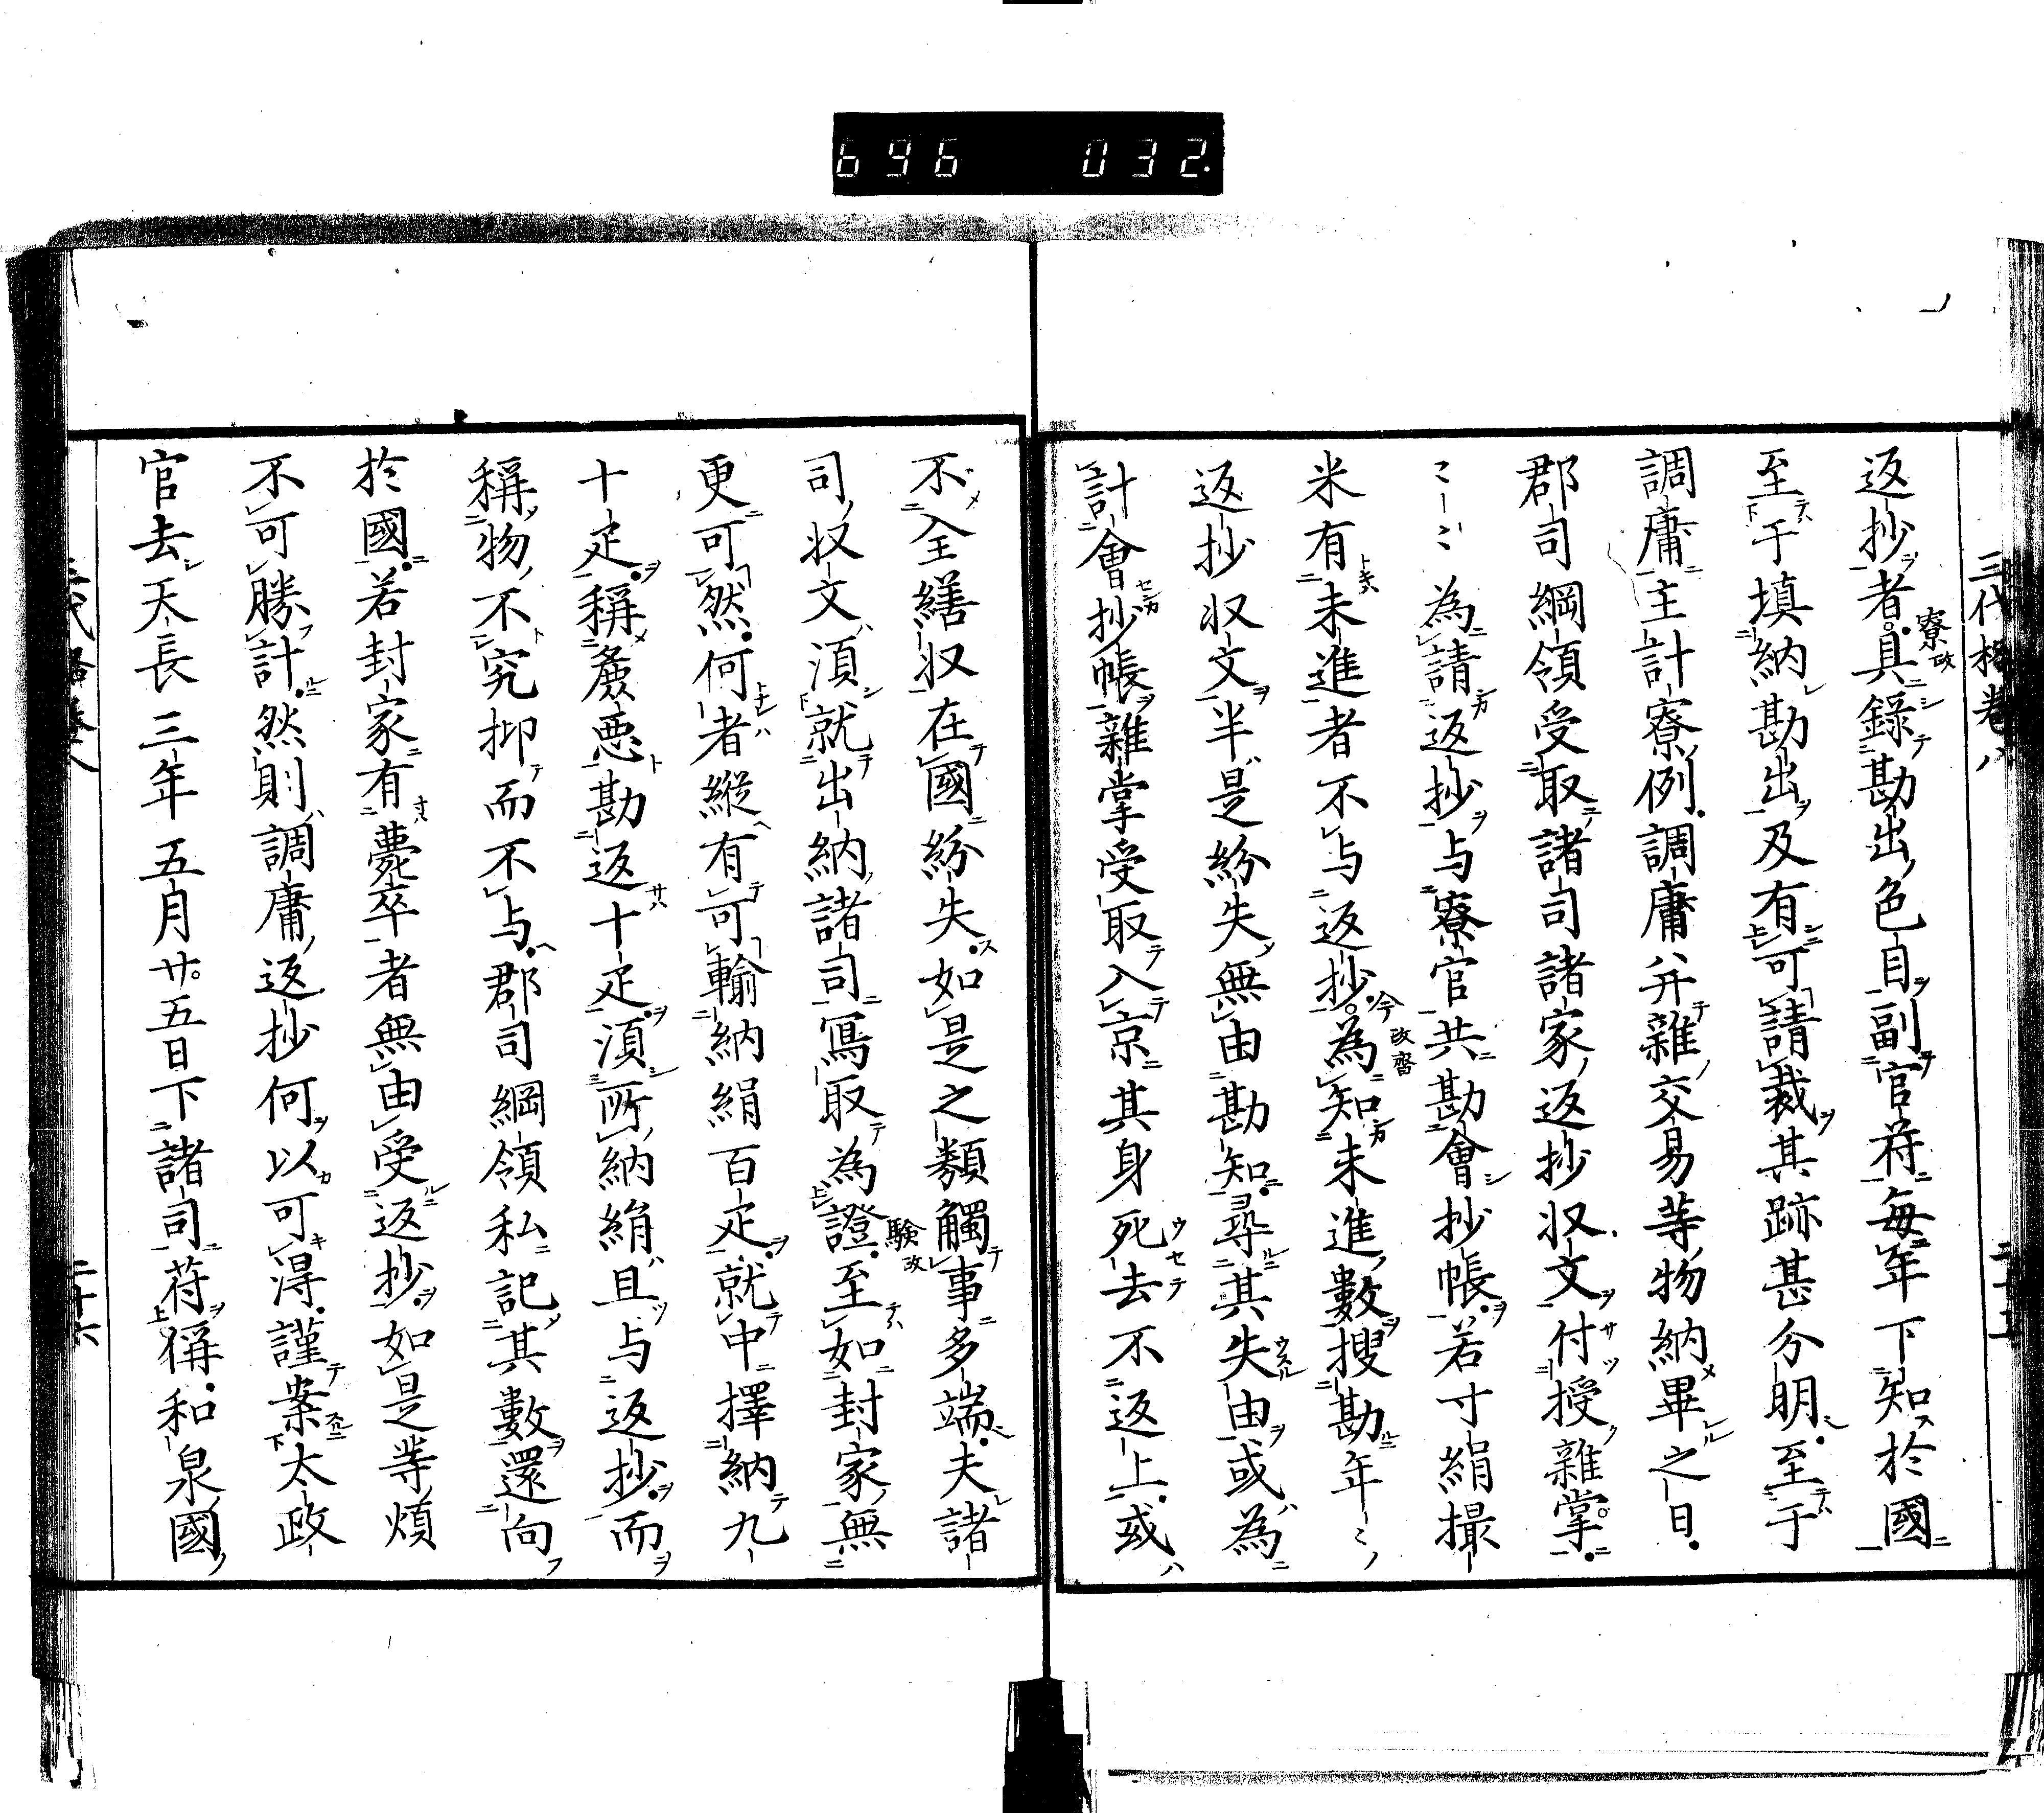 696 032.
三代格卷八
返抄者具錄勘出色自副官符每年下知於國
至于填納勘出及有可請裁其跡甚分明至于
調庸主計寮例調庸并雜交易等物納畢之日
郡司綱領受取諸司諸家返抄收文付授雜掌
〻〻為請返抄与寮官共勘會抄帳若寸絹撮
米有未進者不与返抄為知未進數搜勘年〻
返抄收文半是紛失無由勘知尋其失由或為
計會抄帳雜掌受取入京其身死去不返上或
不全繕收在國紛失如是之類觸事多端夫諸
司收文須就出納諸司寫取為證至如封家無
更可然何者縱有可輸納絹百疋就中擇納九
十疋稱麁悪勘返十疋須所納絹且与返抄而
稱物不究抑而不与郡司綱領私記其數還向
於國若封家有薨卒者無由受返抄如是等煩
不可勝計然則調庸返抄何以可得謹案太政
官去天長三年五月廿五日下諸司符稱和泉國